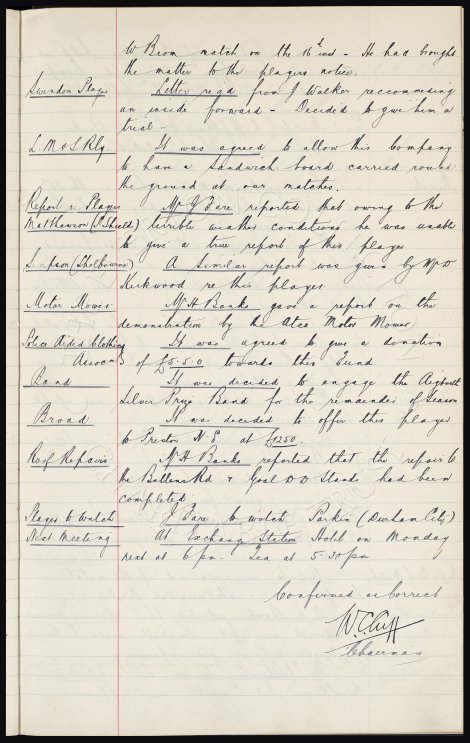 W Brom match on the 16th inst - He had brought
the matter to the players notice.
Swindon Player Letter read from J Walker reccommending
an inside forward - Decided to give him a
trial -
L.M & S Rly It was agreed to allow this Company
to have a sandwich board carried round
the ground at our matches.
Report re Players Mr J Fare reported that owing to the
Mathewson (S Shields) terrible weather conditions he was unable
to give a true report of this player
Simpson (Shelbourne) A similar report was given by Mr D
Kirkwood re this player
Motor Mower Mr H Banks gave a report on the
demonstration by the Atco Motor Mower
Police Aided Clothing It was agreed to give a donation
Assocn of £5.5.0 towards this Fund
Band It was decided to engage the Aigburth
Silver Prize Band for the remainder of season
Broad It was decided to offer this player
to Preston N.E. at £1250.
Roof Repairs Mr H Banks reported that the repair to
the Bullens Rd & Goal Stands had been
completed
Players to Watch J Fare to watch Parkin (Durham City)
Next Meeting At Exchange Station Hotel on Monday
next at 6pm. Tea at 5.30pm
Confirmed as Correct
W.C.Cuff
Chairman